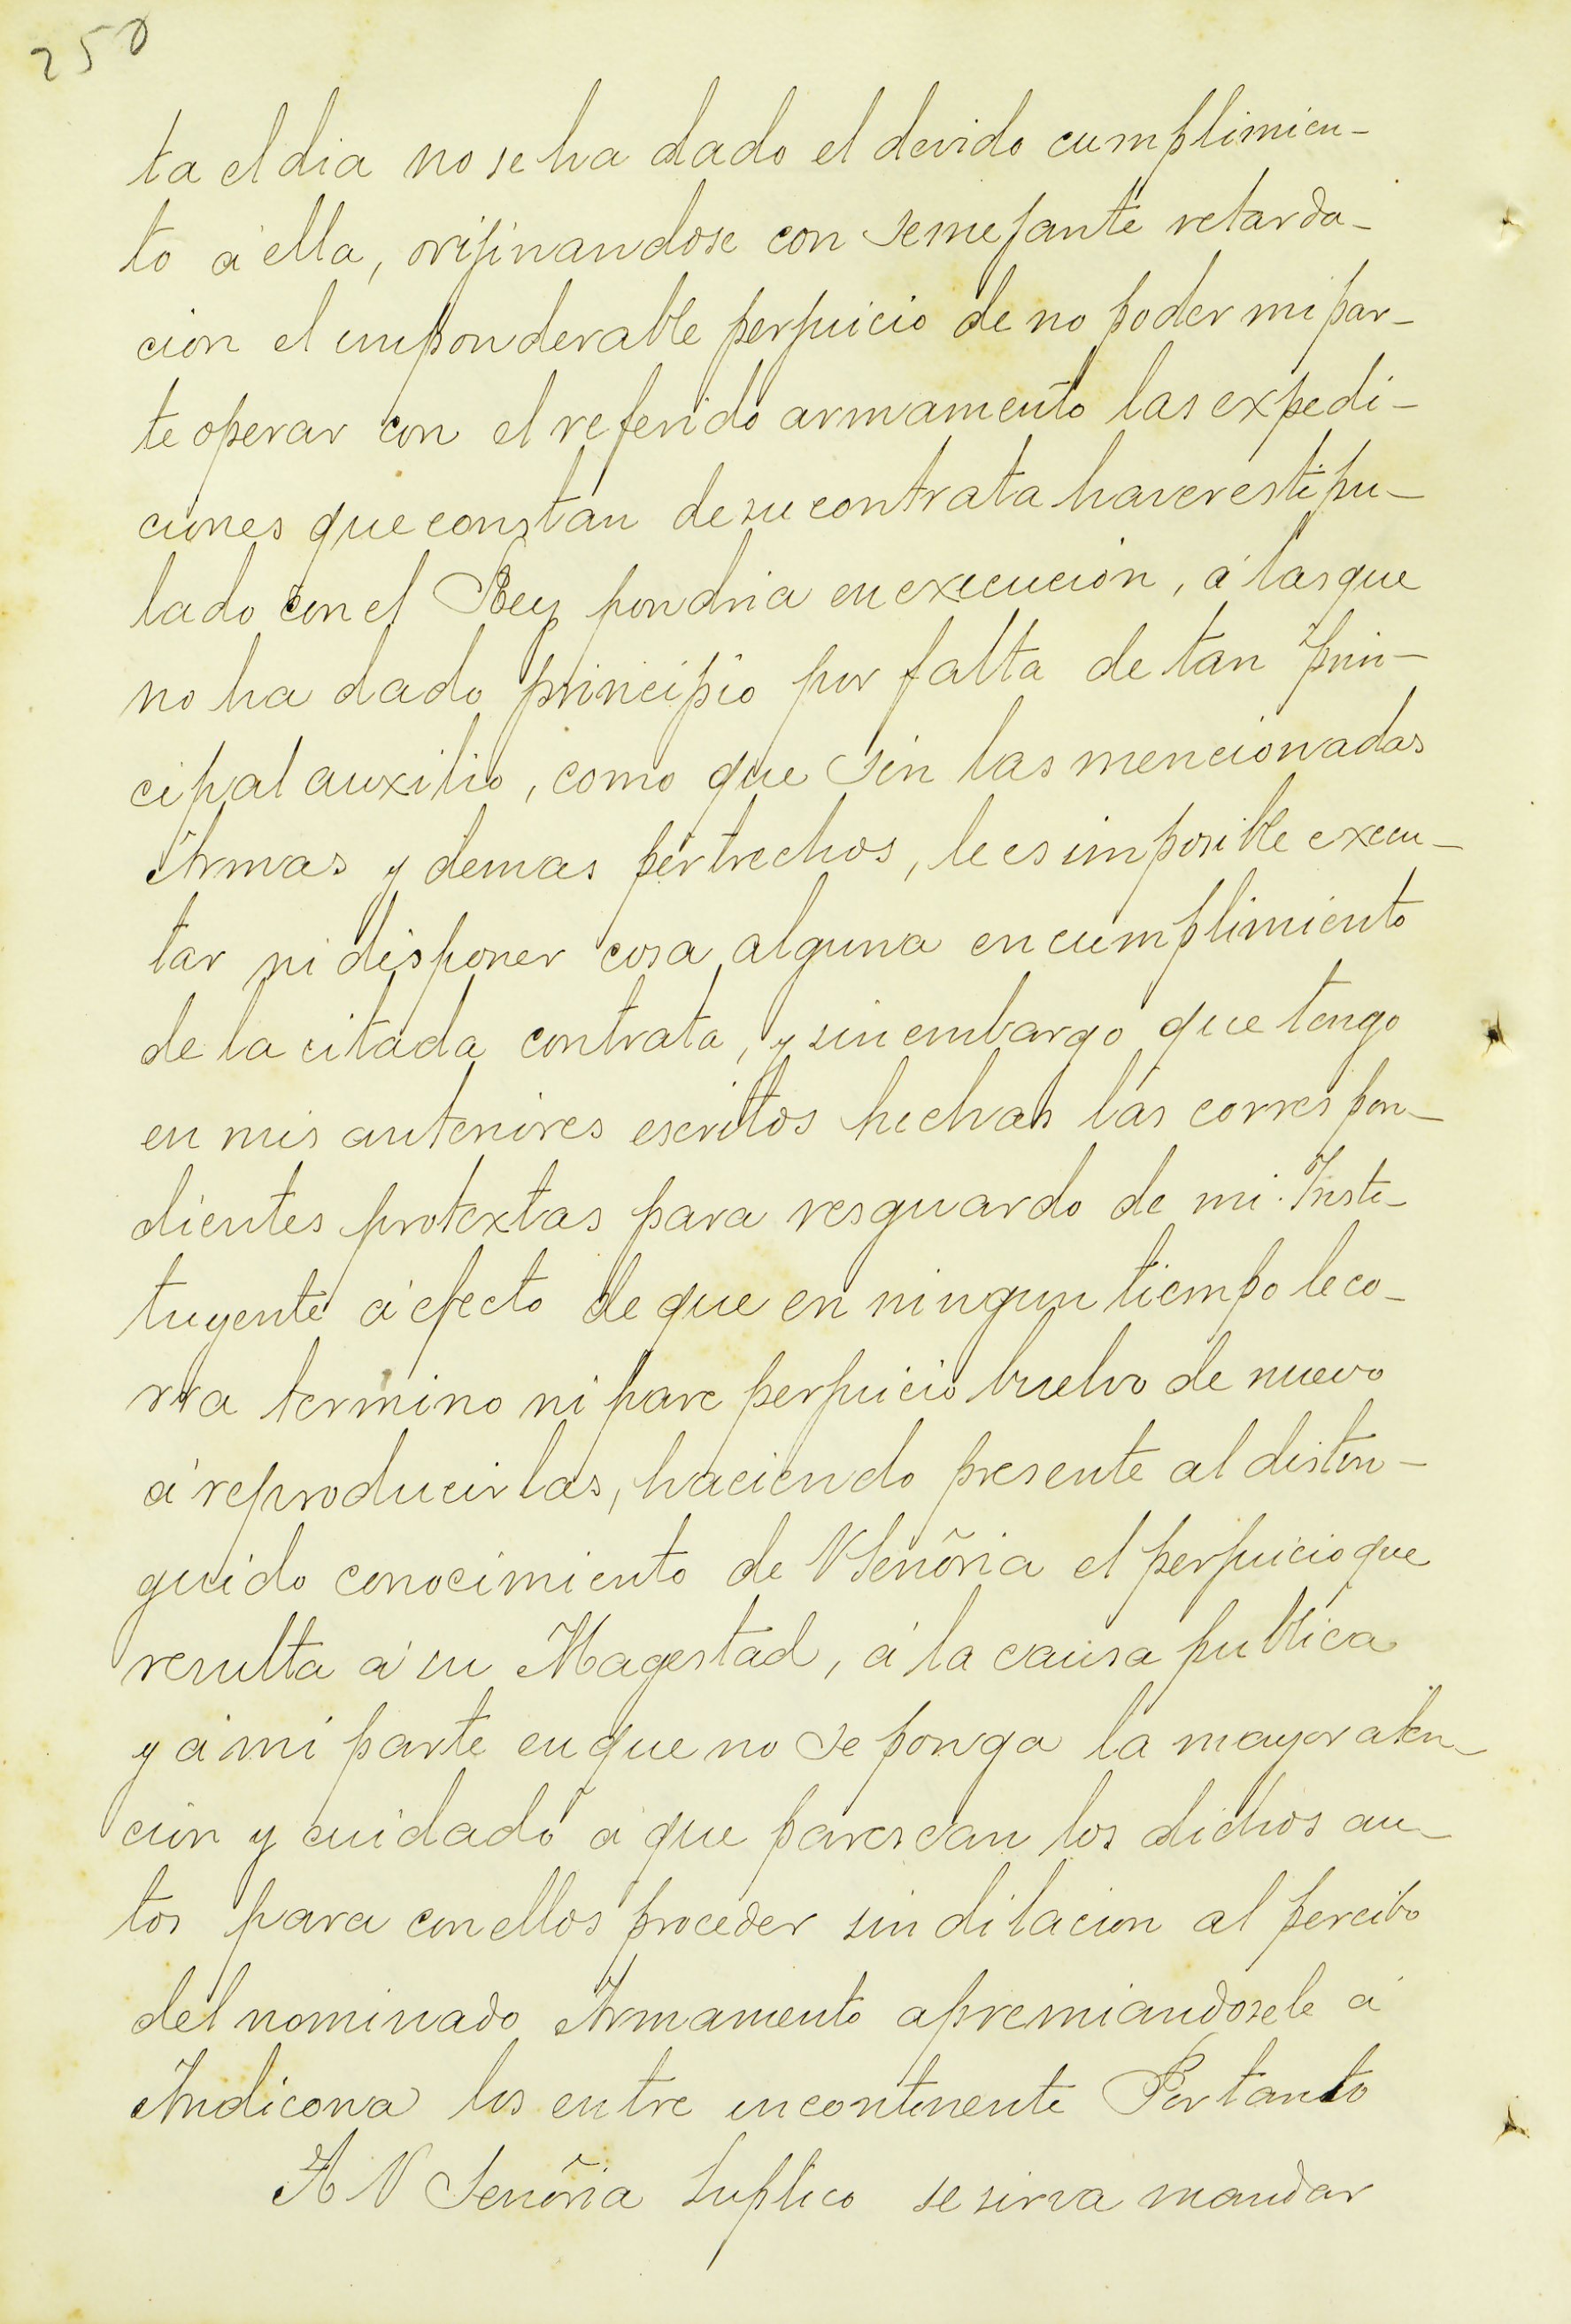 250
ta el dia no se ha dado el devido cumplimien-
to á ella, orijinandose con semejante retarda-
cion el imponderable perjuicio de no poder mi par-
te operar con el referido armamento las expedi-
ciones que constan de su contrata haver estipu-
lado con el Rey pondria en execucion, á las que
no ha dado principio por falta de tan prin-
cipal auxilio, como que sin las mencionadas
Armas y demas pertrechos, le es imposible execu-
tar ni disponer cosa alguna en cumplimiento
de la citada contrata, y sin embargo que tengo
en mis anteriores escritos hechas las correspon-
dientes protextas para resguardo de mi Insti-
tuyente á efecto de que en ningun tiempo le co-
rra termino ni pare perjuicio buelvo de nuevo
á reproducirlas, haciendo presente al distin-
guido conocimiento de V Señoria el perjuicio que
resulta á su Magestad, á la causa publica
y á mi parte en que no se ponga la mayor aten-
cion y cuidado á que parescan los dichos au-
tos para con ellos proceder sin dilacion al percibo
del nominado Armamento apremiandosele á
Andicona los entre incontinente Por tanto
A V Señoria Suplico se sirva mandar